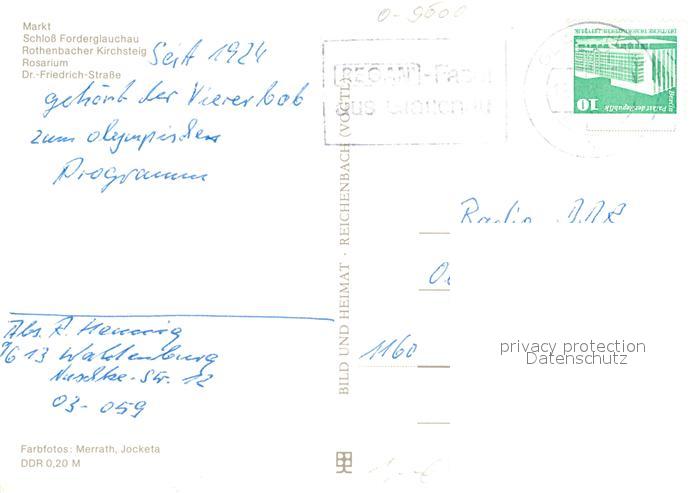 Markt
Schloß Forderglauchau
Rothenbacher Kirchsteig
Rosarium
Dr.-Friedrich-Straße
Seit 1924
gehört der Viererbob
zum olympischen
Programm
Abs. R. Hennig
9613 Waldenburg
Nuschke-Str. 12
03-059
Farbfotos: Merrath, Jocketa
DDR 0,20 M
BILD UND HEIMAT · REICHENBACH (VOGTL)
0-9600
aus
10
Berlin
Palast der Republik
Radio DDR
1160
privacy protection
Datenschutz